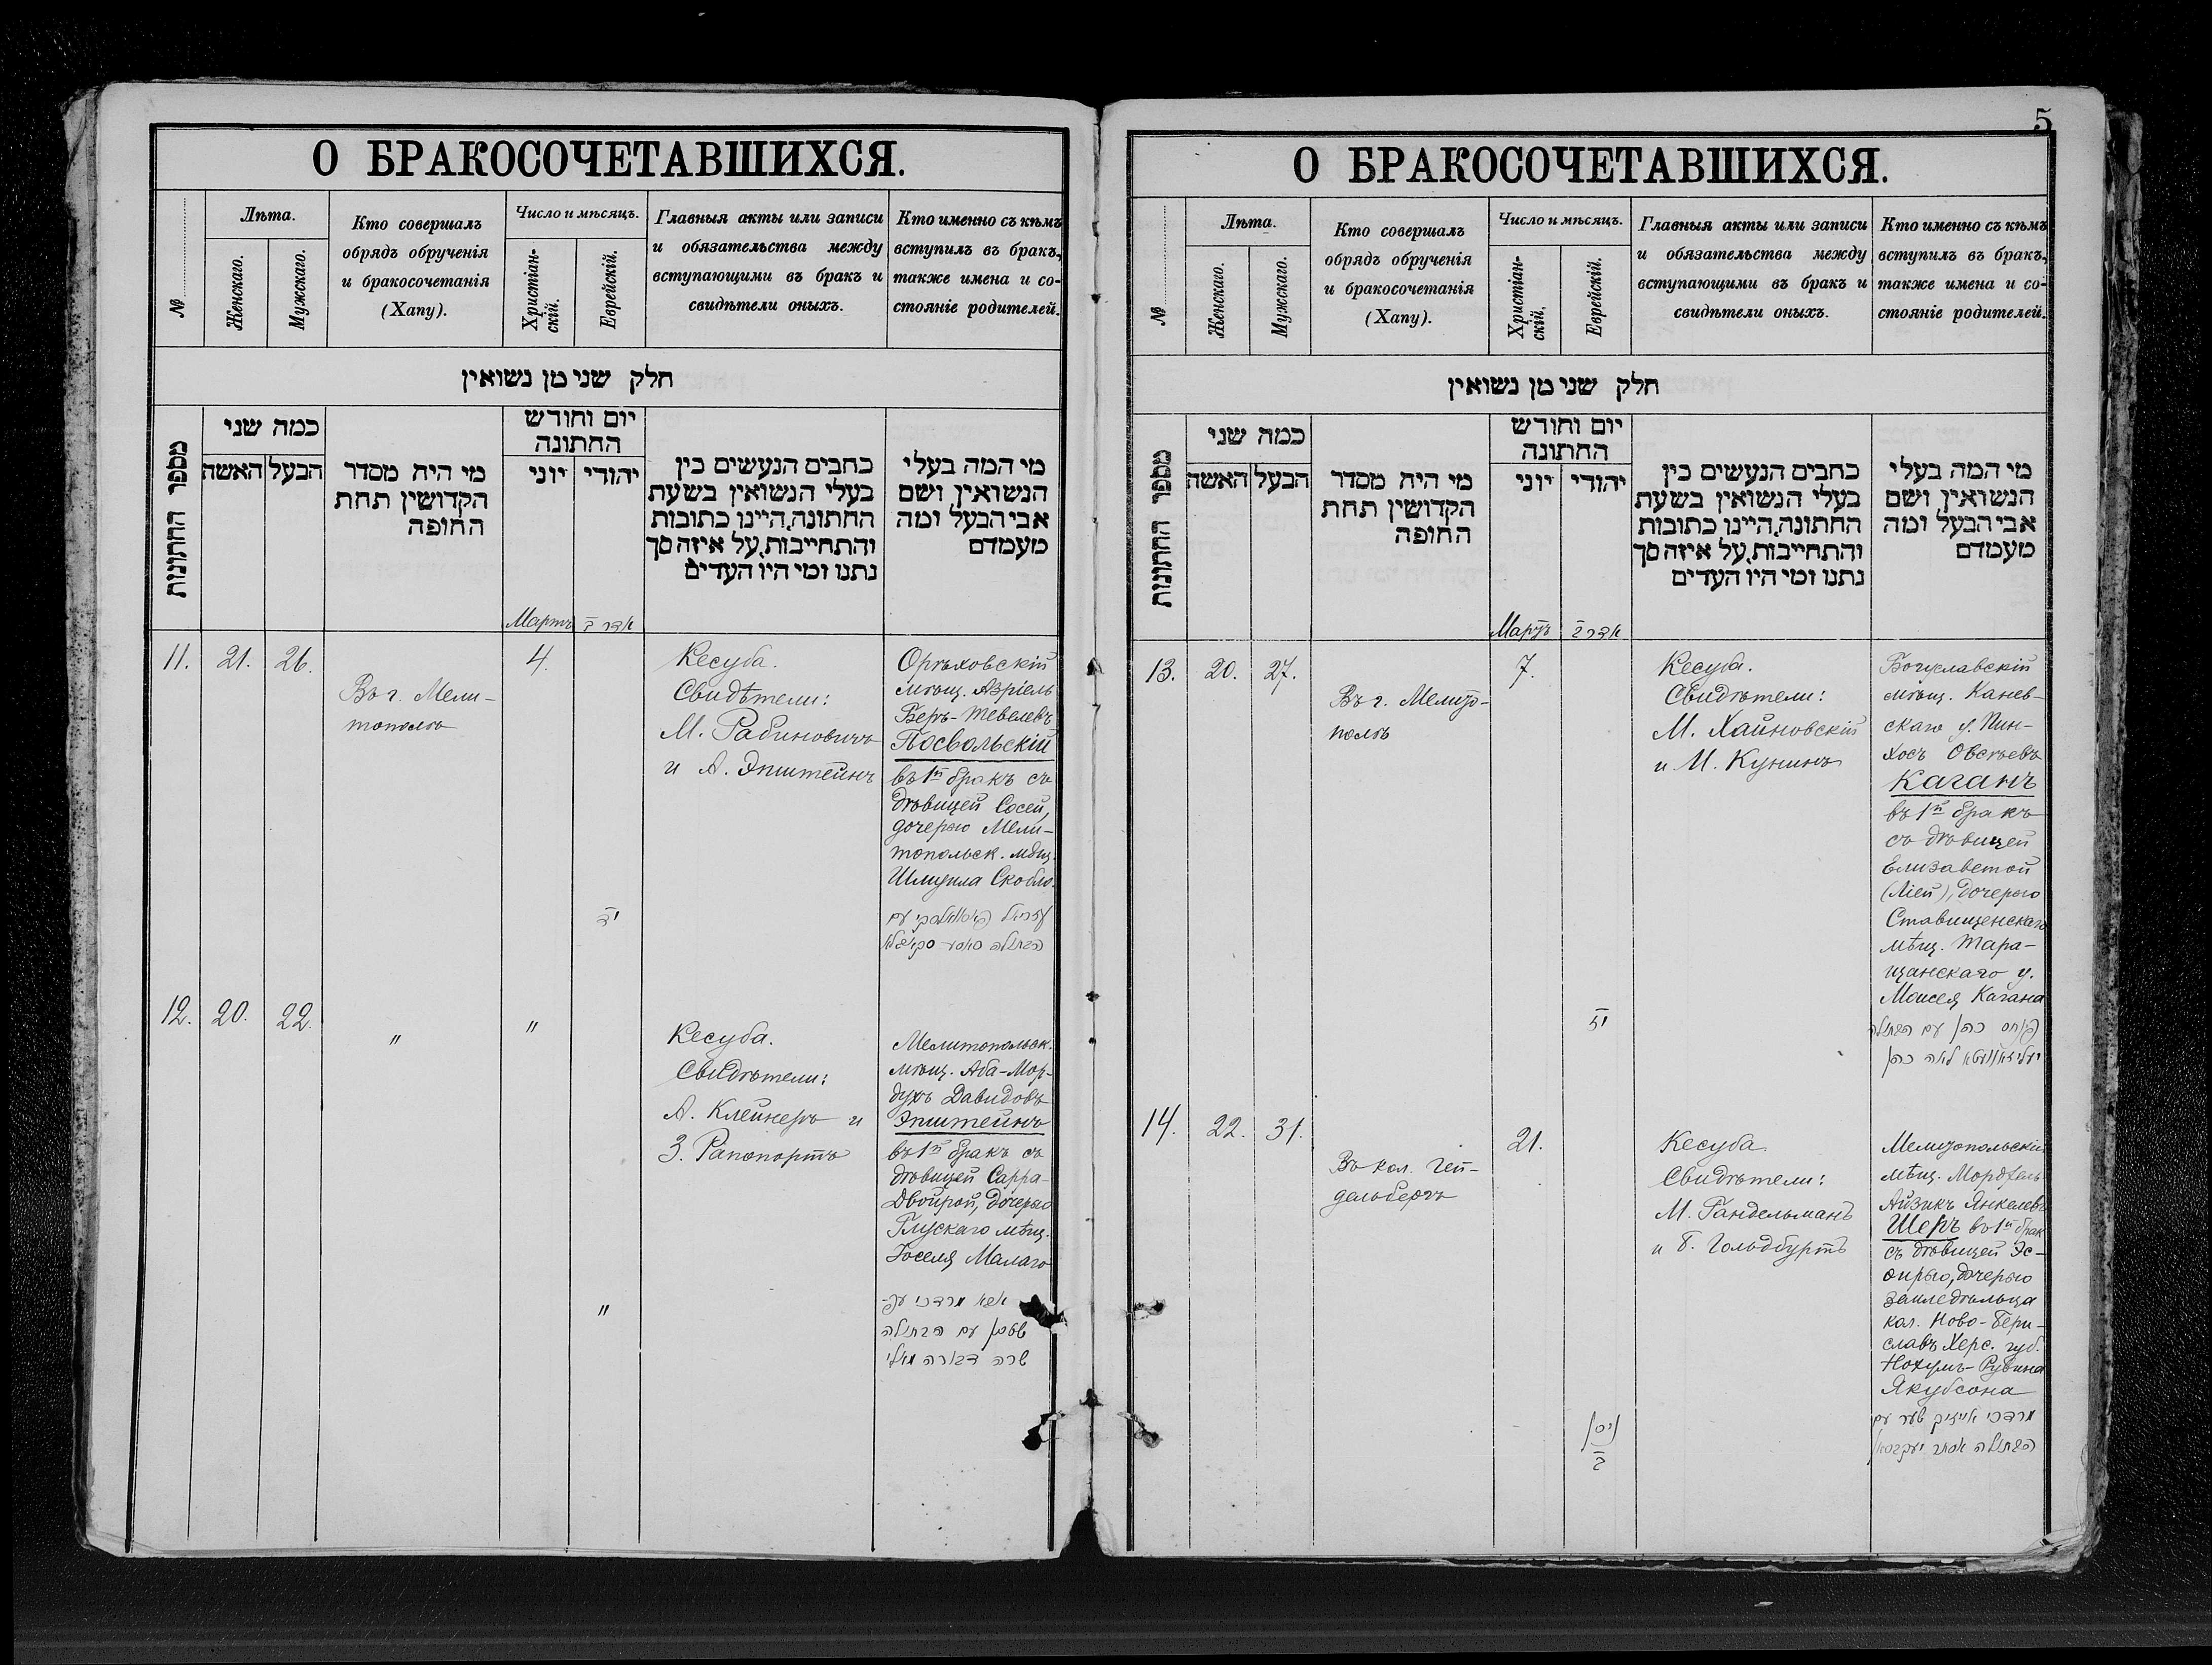 О БРАКОСОЧЕТАВШИХСЯ.
№
Лѣта.
Женскаго.
Мужскаго.
Кто совершалъ
обрядъ обрученія
и бракосочетанія
(Хапу).
Число и мѣсяцъ.
Христіан-
скій.
Еврейскій.
Главныя акты или записи
и обязательства между
вступающими въ бракъ и
свидѣтели оныхъ.
Кто именно съ кѣмъ
вступилъ въ бракъ,
также имена и со-
стояніе родителей.
חלק שני מן נשואין
מספר החתונות
כמה שני
האשה
הבעל
מי היה מסדר
הקדושין תחת
החופה
יום וחודש
החתונה
יוני
יהודי
כתבים הנעשים בין
בעלי הנשואין בשעת
החתונה, היינו כתובות
והתחייבות, על איזה סך
נתנו ומי היו העדים
מי המה בעלי
הנשואין, ושם
אבי הבעל ומה
מעמדם
Мартъ
אדר ב
11. 21. 26.
Въ г. Мели-
тополѣ
4.
יד
Кесуба.
Свидѣтели:
М. Рабиновичъ
и А. Эпштейнъ
Орѣховскій
мѣщ. Азріель
Беръ-Тевелевъ
Посвольскій
въ 1й бракъ съ
дѣвицей Сосей,
дочерью Мели-
топольск. мѣщ.
Шмуила Скобло.
12. 20. 22.
"
"
"
Кесуба.
Свидѣтели:
А. Клейнеръ и
З. Рапопортъ
Мелитопольск.
мѣщ. Аба-Мор-
духъ Давидовъ
Эпштейнъ
въ 1й бракъ съ
дѣвицей Сарра-
Двойрой, дочерью
Глускаго мѣщ.
Іоселя Малаго
אבא מרדכי עפ-
שטיין עם הבתולה
שרה דבורה מאלי
5
О БРАКОСОЧЕТАВШИХСЯ.
№
Лѣта.
Женскаго.
Мужскаго.
Кто совершалъ
обрядъ обрученія
и бракосочетанія
(Хапу).
Число и мѣсяцъ.
Христіан-
скій.
Еврейскій.
Главныя акты или записи
и обязательства между
вступающими въ бракъ и
свидѣтели оныхъ.
Кто именно съ кѣмъ
вступилъ въ бракъ,
также имена и со-
стояніе родителей.
חלק שני מן נשואין
מספר החתונות
כמה שני
האשה
הבעל
מי היה מסדר
הקדושין תחת
החופה
יום וחודש
החתונה
יוני
יהודי
כתבים הנעשים בין
בעלי הנשואין בשעת
החתונה, היינו כתובות
והתחייבות, על איזה סך
נתנו ומי היו העדים
מי המה בעלי
הנשואין, ושם
אבי הבעל ומה
מעמדם
Мартъ
אדר ב
13. 20. 27.
Въ г. Мелито-
полѣ
7.
Кесуба.
Свидѣтели:
М. Хайновскій
и М. Кунинъ
Богуславскій
мѣщ. Канев-
скаго у. Пин-
хосъ Овсѣевъ
Каганъ
въ 1й бракъ
съ дѣвицей
Елизаветой
(Ліей), дочерью
Ставищенскаго
мѣщ. Тара-
щанскаго у.
Моисея Кагана
פינחס כהן עם הבתולה
לאה כהן
14. 22. 31.
Въ кол. Гей-
дельбергъ
21.
ניסן
ב
Кесуба
Свидѣтели:
М. Гандельманъ
и Б. Гольдбуртъ
Мелитопольскій
мѣщ. Мордхель
Айзикъ Янкелевъ
Шеръ въ 1й брак
съ дѣвицей Эс-
ѳирью, дочерью
земледѣльца
кол. Ново-Бери-
славъ Херс. губ.
Нохумъ-Рувина
Якубсона
מרדכי אייזיק שער עם
הבתולה אסתר יעקבסאן